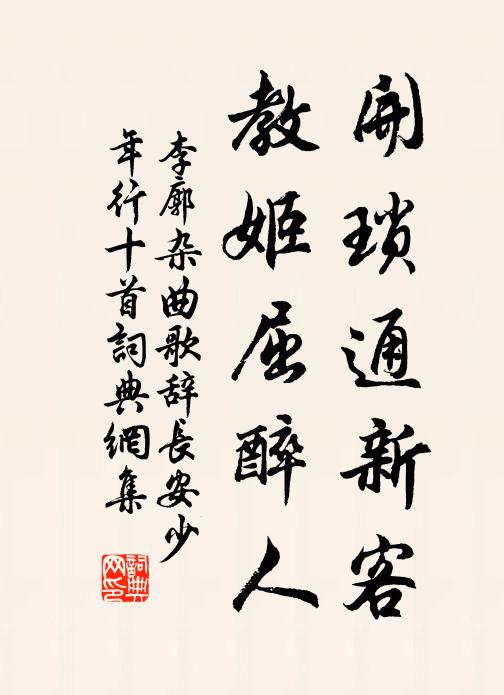 開瑣通新客
教姬屈醉人
李廓杂曲歌辞長安少
年行十首詞典網集
詞典
网印